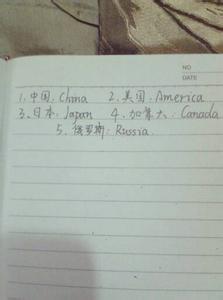 NO
DATE
1. 中国: China 2. 美国: America
3. 日本: Japan 4. 加拿大: Canada
5. 俄罗斯: Russia.